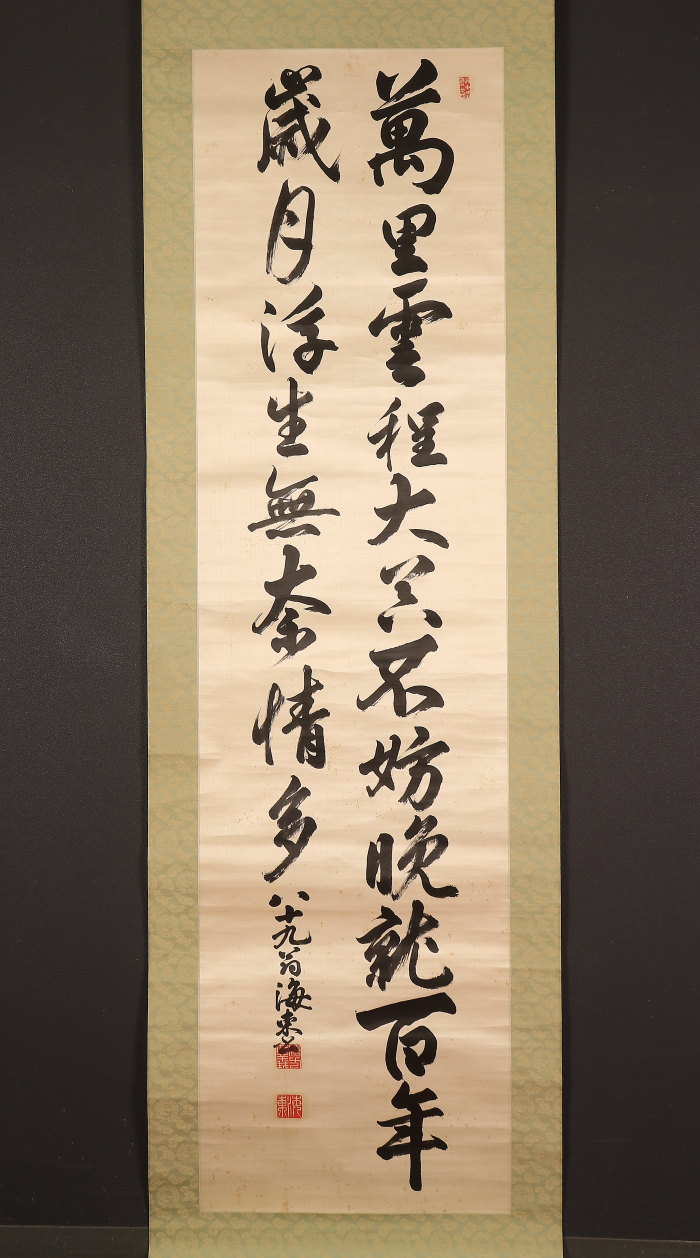 萬里雲程大器不妨晩就百年
歲月浮生無奈情多
八十九翁海東
海東